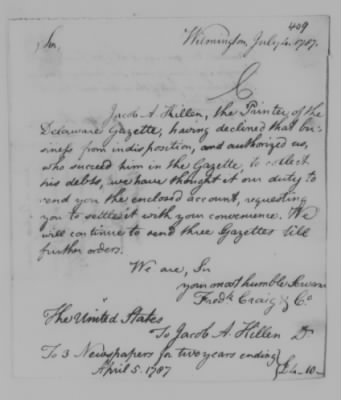 409
Sir,
Wilmington, July 4. 1787.
Jacob A. Killen, the Printer of the
Delaware Gazette, having declined that bu-
siness from indisposition, and authorized us,
who succeed him in the Gazette, to collect
his debts, we have thought it our duty to
send you the enclosed account, requesting
you to settle it with your convenience. We
will continue to send three Gazettes till
further orders.
We are, Sir
your most humble Servants
Fredk Craig & Co
The United States
To Jacob A. Killen Dr
To 3 Newspapers for two years ending
April 5. 1787